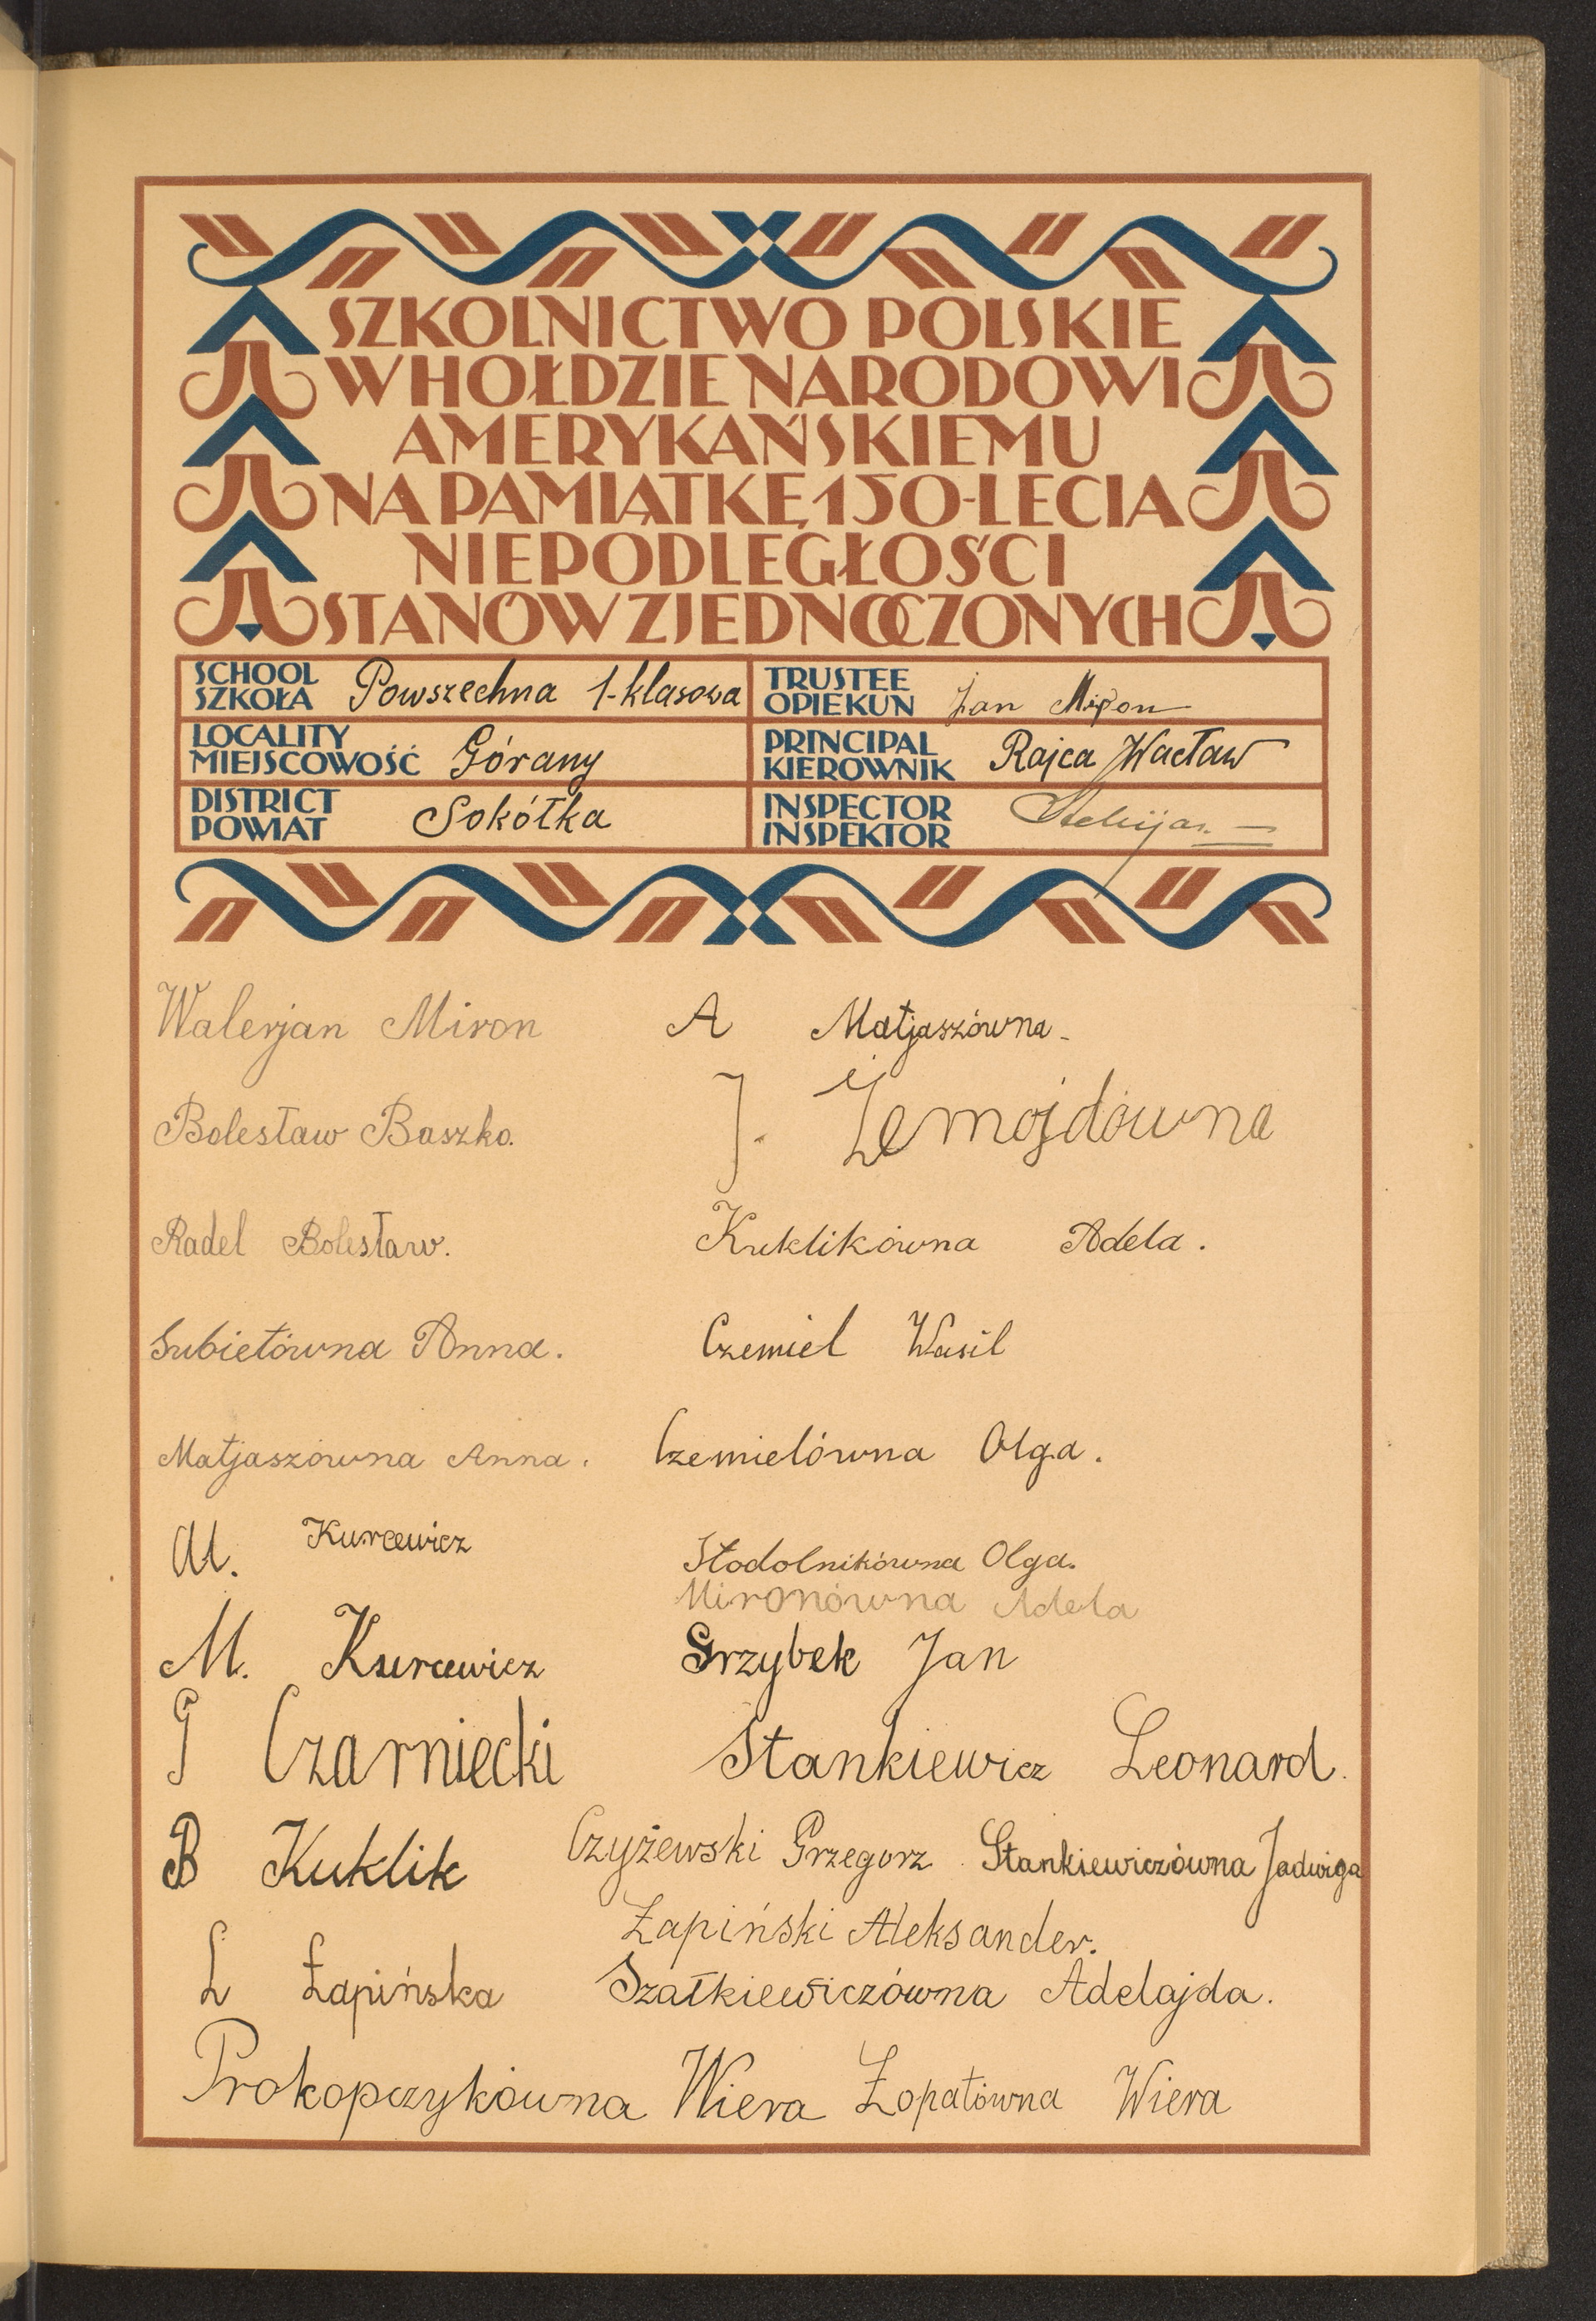 SZKOLNICTWO POLSKIE
W HOŁDZIE NARODOWI
AMERYKAŃSKIEMU
NA PAMIĄTKĘ 150-LECIA
NIEPODLEGŁOŚCI
STANÓW ZJEDNOCZONYCH
SCHOOL SZKOŁA Powszechna 1-klasowa
TRUSTEE OPIEKUN Jan Miron
LOCALITY MIEJSCOWOŚĆ Górany
PRINCIPAL KIEROWNIK Rajca Wacław
DISTRICT POWIAT Sokółka
INSPECTOR INSPEKTOR
Walerjan Miron A Matjaszówna
Bolesław Baszko. J. Żemojdówna
Radel Bolesław. Kuklikówna Adela.
Subietówna Anna. Czemiel Wasil
Matjaszówna Anna. Czemielówna Olga.
Al. Kurcewicz Stodolnikówna Olga.
Mironówna Adela
M. Kurcewicz Grzybek Jan
G Czarniecki Stankiewicz Leonard.
B Kuklik Czyżewski Grzegorz Stankiewiczówna Jadwiga
Łapiński Aleksander.
L Łapińska Szałkiewiczówna Adelajda.
Prokopczykówna Wiera Łopatówna Wiera